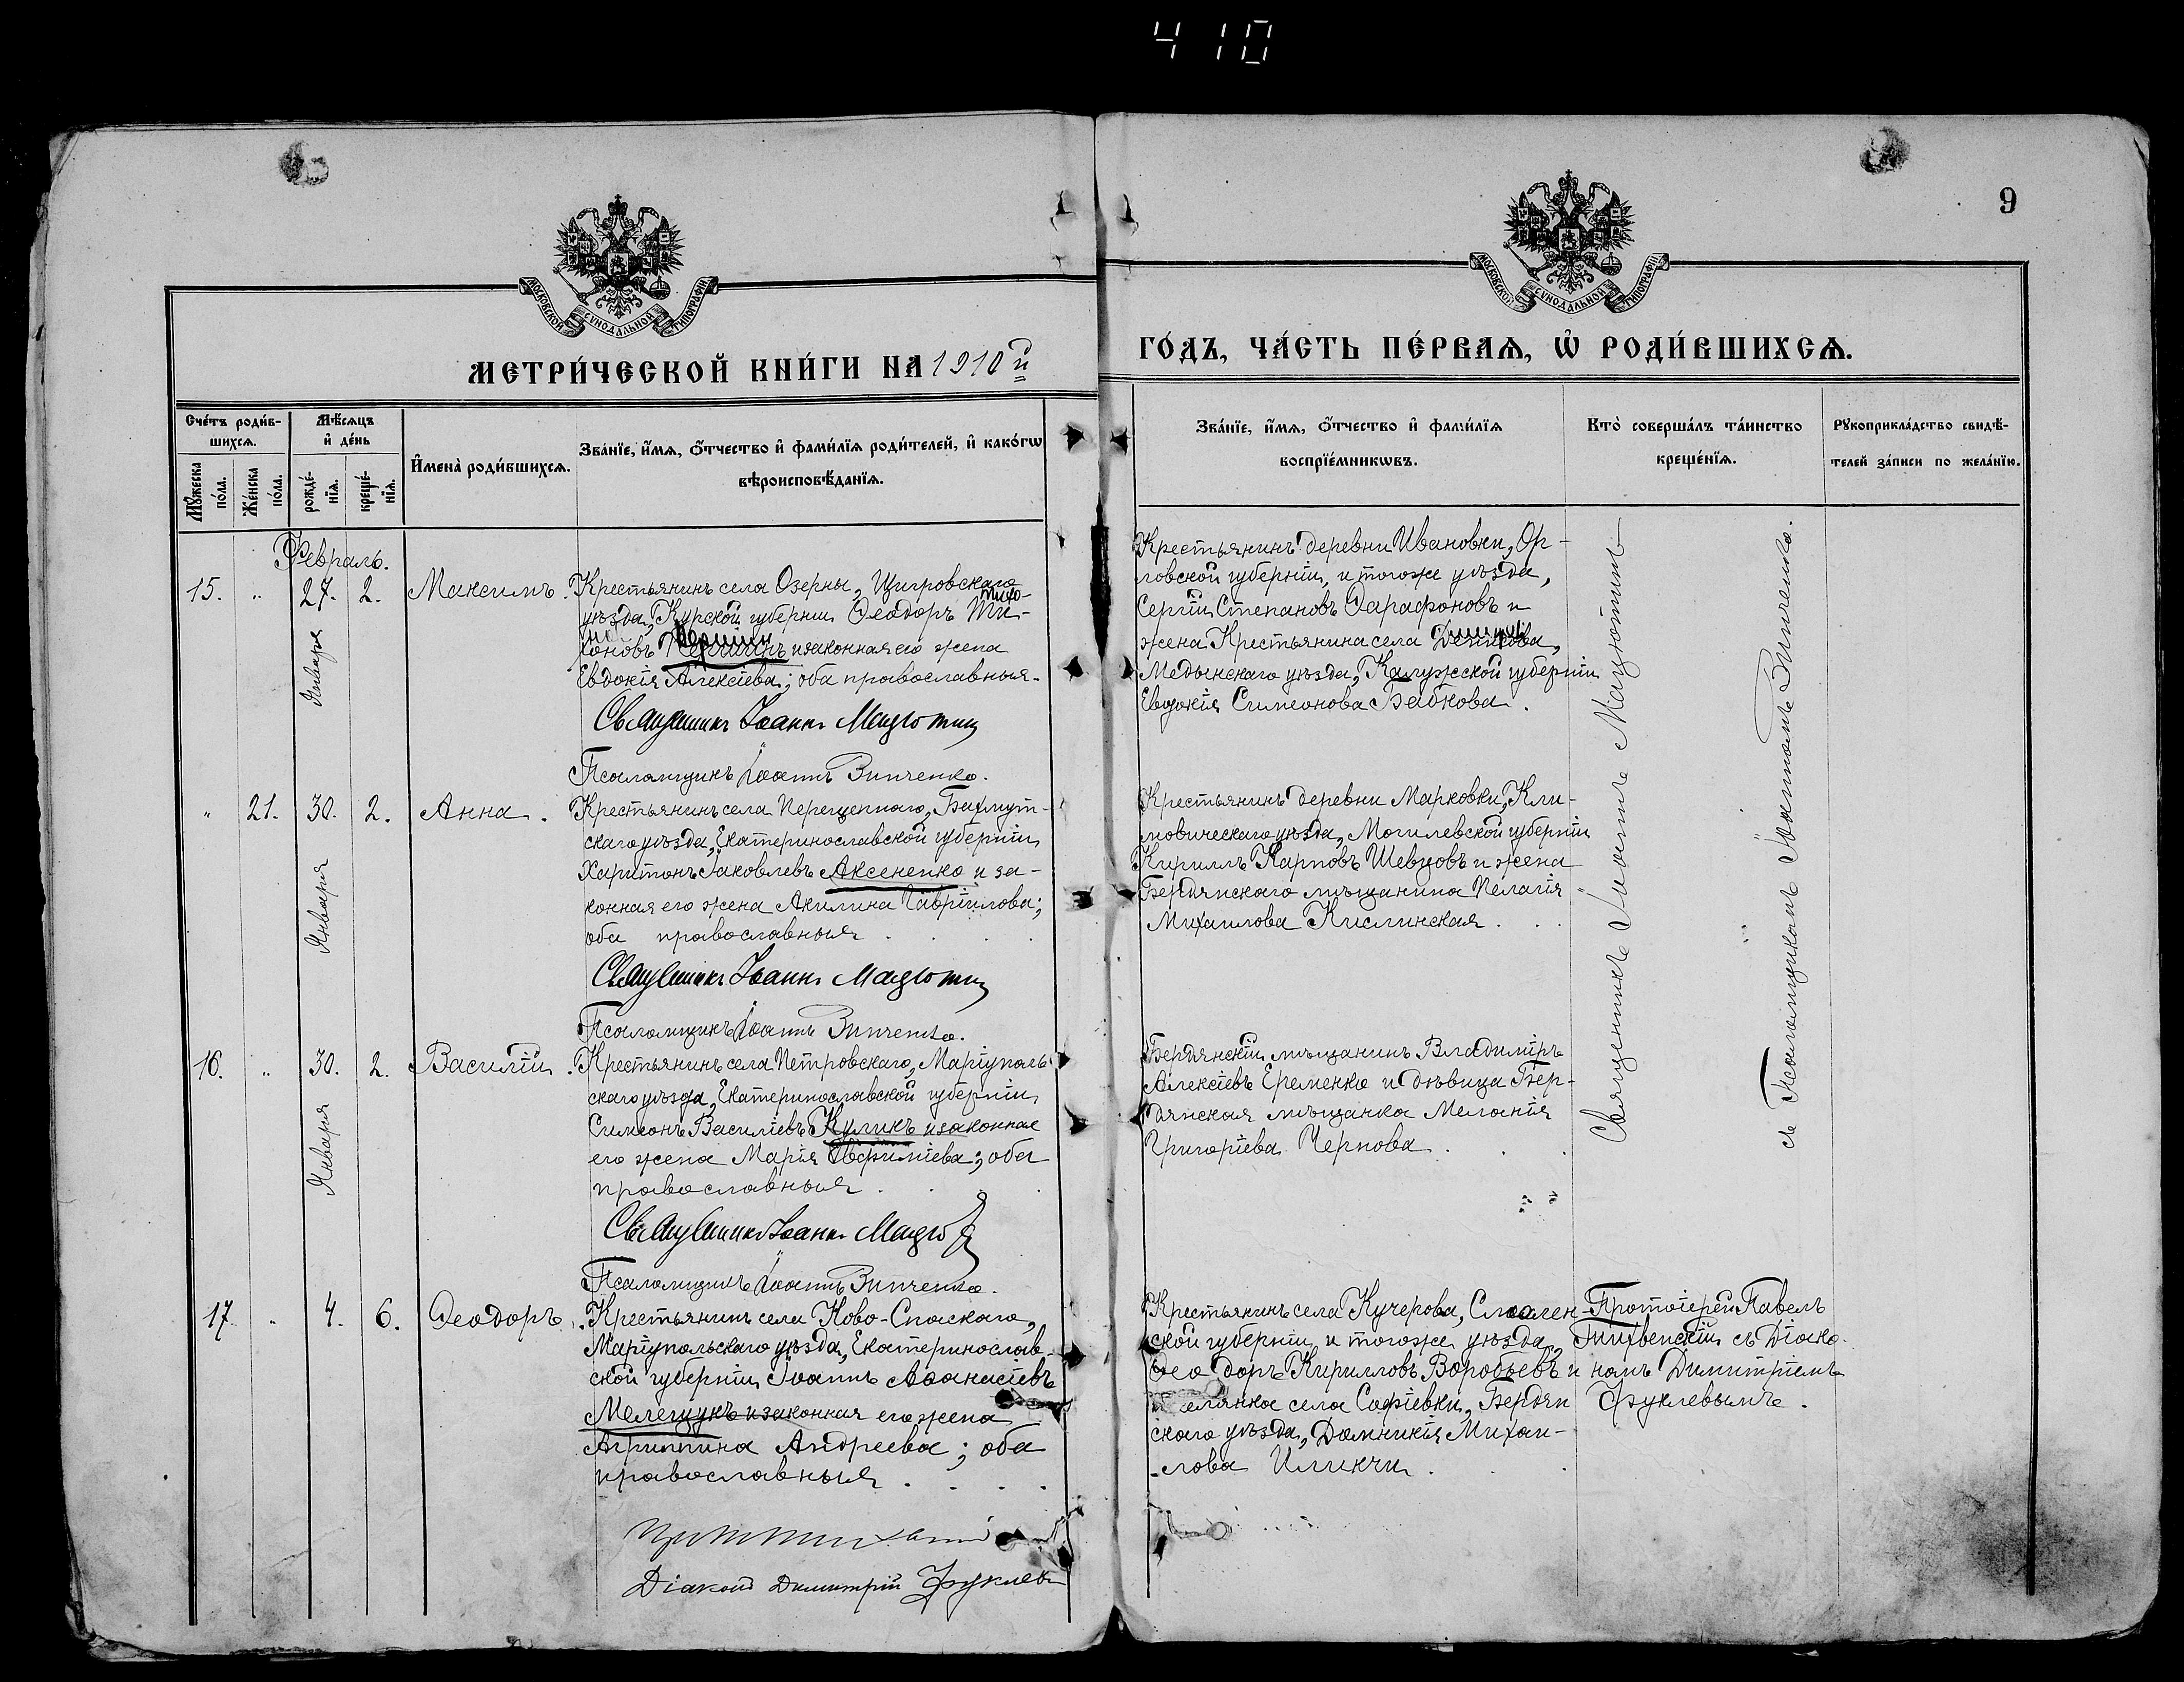 410
9
МОСКОВСКОЙ СУНОДАЛЬНОЙ ТИПОГРАФІИ
МОСКОВСКОЙ СУНОДАЛЬНОЙ ТИПОГРАФІИ
МЕТРИ́ЧЕСКОЙ КНИ́ГИ НА 1910й
ГО́ДЪ, ЧА́СТЬ ПЕ́РВАѦ, Ѡ҆ РОДИ́ВШИХСѦ.
Сче́тъ роди́в-
шихсѧ.
Мѣ́сѧцъ
и҆ де́нь
Мꙋ́жеска по́ла.
Же́нска по́ла.
рожде́-
нїѧ.
креще́-
нїѧ.
И҆мена̀ роди́вшихсѧ.
Зва́нїе, и҆́мѧ, ѻ҆́тчество и҆ фами́лїѧ роди́телей, и҆ како́гѡ
вѣроисповѣ́данїѧ.
Зва́нїе, и҆́мѧ, ѻ҆́тчество и҆ фами́лїѧ
воспрїе́мникѡвъ.
Кто̀ соверша́лъ та́инство
креще́нїѧ.
Рꙋкоприкла́дство свидѣ́-
телей за́писи по жела́нїю.
Февраль.
15. " 27. 2. Максимъ.
Января
Крестьянинъ села Озерны, Щигровскаго
уѣзда, Курской губерніи Ѳеодоръ Ти-
хоновъ изаконная его жена
Евдокія Алексіева; оба православныя.
Священникъ Іоаннъ Мацютинъ
Псаломщикъ Іоаннъ Зинченко.
Крестьянинъ деревни Ивановки, Ор-
ловской губерніи, и тогоже уѣзда,
Сергій Степановъ Сарафоновъ и
жена Крестьянина села
Медынскаго уѣзда, Калужской губерніи
Евдокія Симеонова Бабкова.
Священникъ Іоаннъ Мацютинъ
съ Псаломщикомъ Іоанномъ Зинченко.
" 21. 30. 2. Анна.
Января
Крестьянинъ села Перещепнаго, Бахмут-
скаго уѣзда, Екатеринославской губерніи
Харитонъ Іаковлевъ Аксененко и за-
конная его жена Акилина Гавріилова;
оба православныя.
Священникъ Іоаннъ Мацютинъ
Псаломщикъ Іоаннъ Зинченко.
Крестьянинъ деревни Марковки, Кли-
мовическаго уѣзда, Могилевской губерніи
Кириллъ Карповъ Шевцовъ и жена
Бердянскаго мѣщанина Пелагія
Михаилова Кислинская.
16. " 30. 2. Василій.
Января
Крестьянинъ села Петровскаго, Маріуполь-
скаго уѣзда, Екатеринославской губерніи
Симеонъ Василіевъ Куликъ изаконная
его жена Марія Евфиміева; оба
православныя.
Священникъ Іоаннъ Мацют
Псаломщикъ Іоаннъ Зинченко.
Бердянскій мѣщанинъ Владиміръ
Алексіевъ Еременко и дѣвица Бер-
дянская мѣщанка Меланія
Григоріева Чернова.
17. " 4. 6. Ѳеодоръ.
Крестьянинъ села Ново-Спаскаго,
Маріупольскаго уѣзда, Екатеринослав-
ской губерніи Іоаннъ Аѳанасіевъ
Мелещукъ изаконная его жена
Агриппина Андреева; оба
православныя.
Діаконъ Димитрій Фуклевъ
Крестьянинъ села Кучерова, Смолен-
ской губерніи и тогоже уѣзда,
Ѳеодоръ Кирилловъ Воробьевъ и
селянка села Софіевки, Бердян
скаго уѣзда, Домникія Михаи-
лова Илинчи.
Протоіерей Павелъ
Тихвенскій съ Діако-
номъ Димитріемъ
Фуклевымъ.